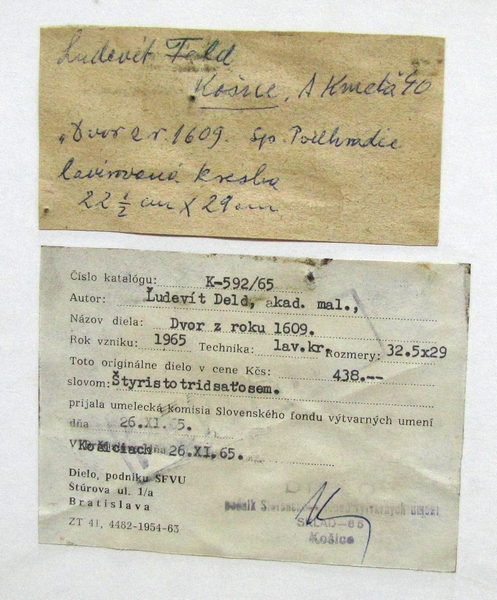 Ludevít Feld
Košice, A Kmeťa 40
„Dvor z r. 1609. Sp. Podhradie
lavírovaná kresba
22 ½ cm x 29 cm
Číslo katalógu: K-592/65
Autor: Ľudevít Deld, akad. mal.,
Názov diela: Dvor z roku 1609.
Rok vzniku: 1965 Technika: lav.kr. Rozmery: 32.5x29
Toto originálne dielo v cene Kčs: 438.--
slovom: Štyristotridsaťosem.
prijala umelecká komisia Slovenského fondu výtvarných umení
dňa 26.XI.65.
V Košiciach dňa 26.XI.65.
Dielo, podniku SFVU
Štúrova ul. 1/a
Bratislava
ZT 41, 4482-1954-63
podnik Slovenského fondu výtvarných umení
SKLAD-85
Košice